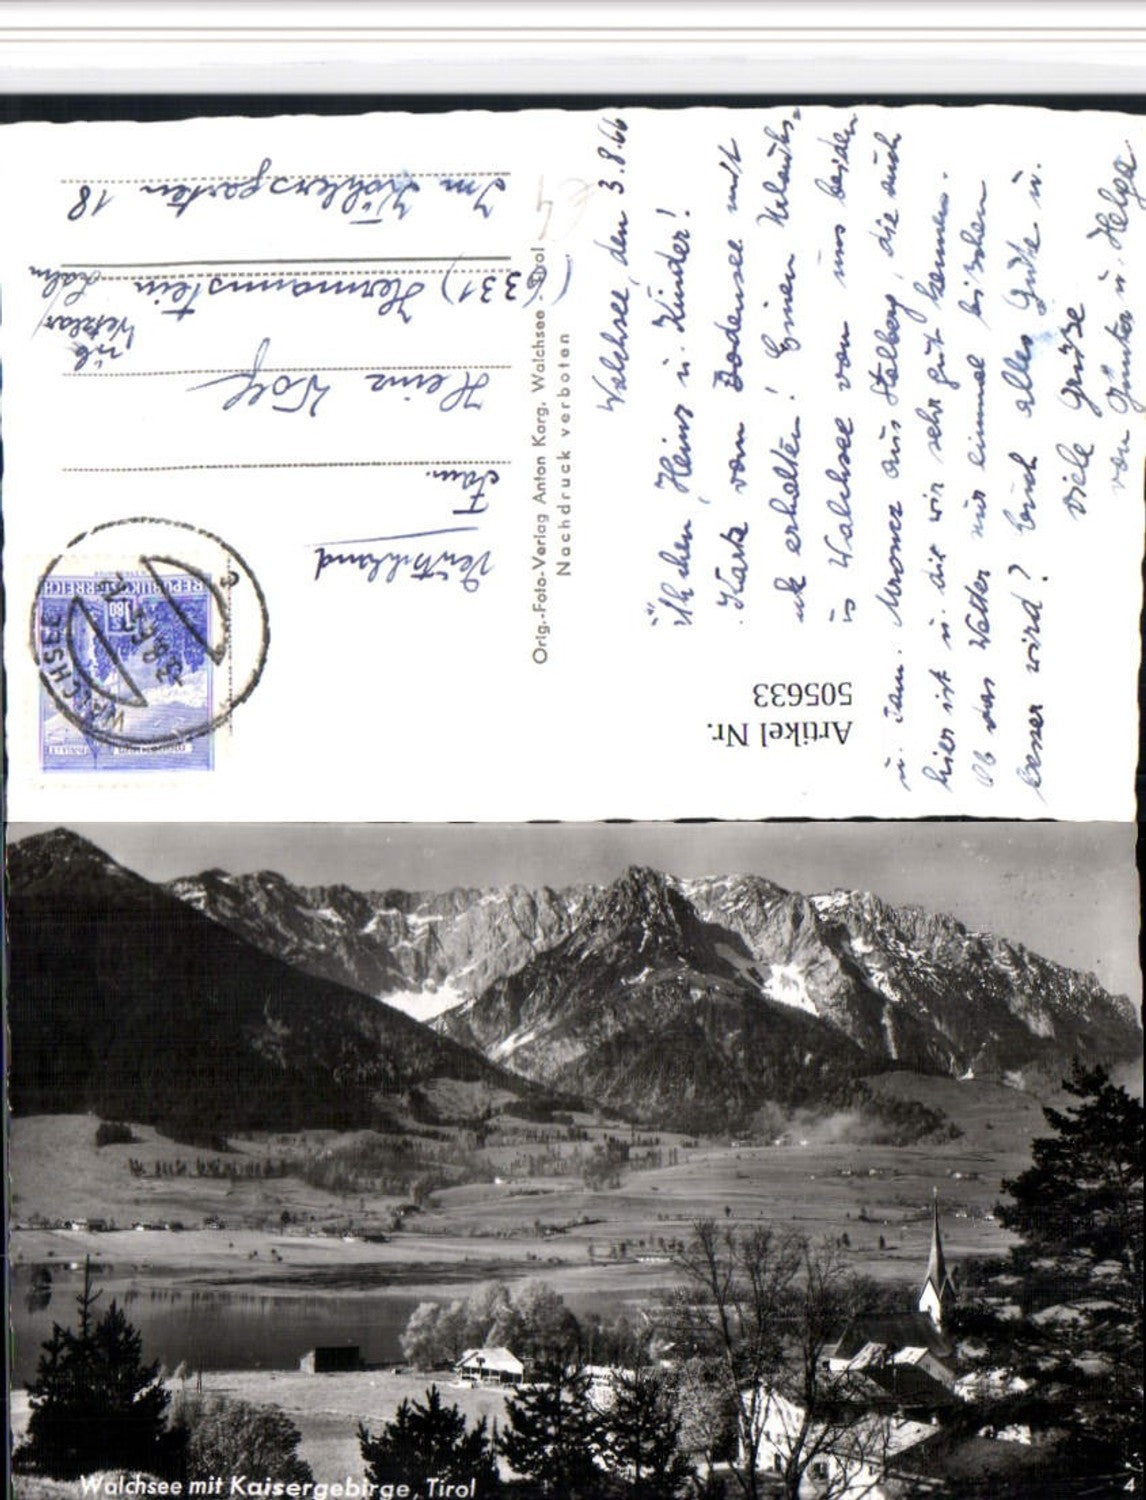 Walchsee, den 3.8.66
Heinz u. Kinder!
Karte vom Bodensee mit
erhalten! Einen Urlaubs-
Walchsee von uns beiden
u. Fam. aus Stolberg, die auch
hier ist u. die wir sehr gut kennen.
Ob das Wetter nur einmal bißchen
besser wird? Euch alles Gute u.
viele Grüße
von Günter u. Helga
Orig.-Foto-Verlag Anton Karg, Walchsee Tirol
Nachdruck verboten
REPUBLIK ÖSTERREICH
1.80
WALCHSEE
Deutschland
Fam.
Heinz Wolf
(6331) Hermannstein
üb. Wetzlar
Lahn
Im Köhlersgarten 18
Artikel Nr.
505633
Walchsee mit Kaisergebirge, Tirol
4